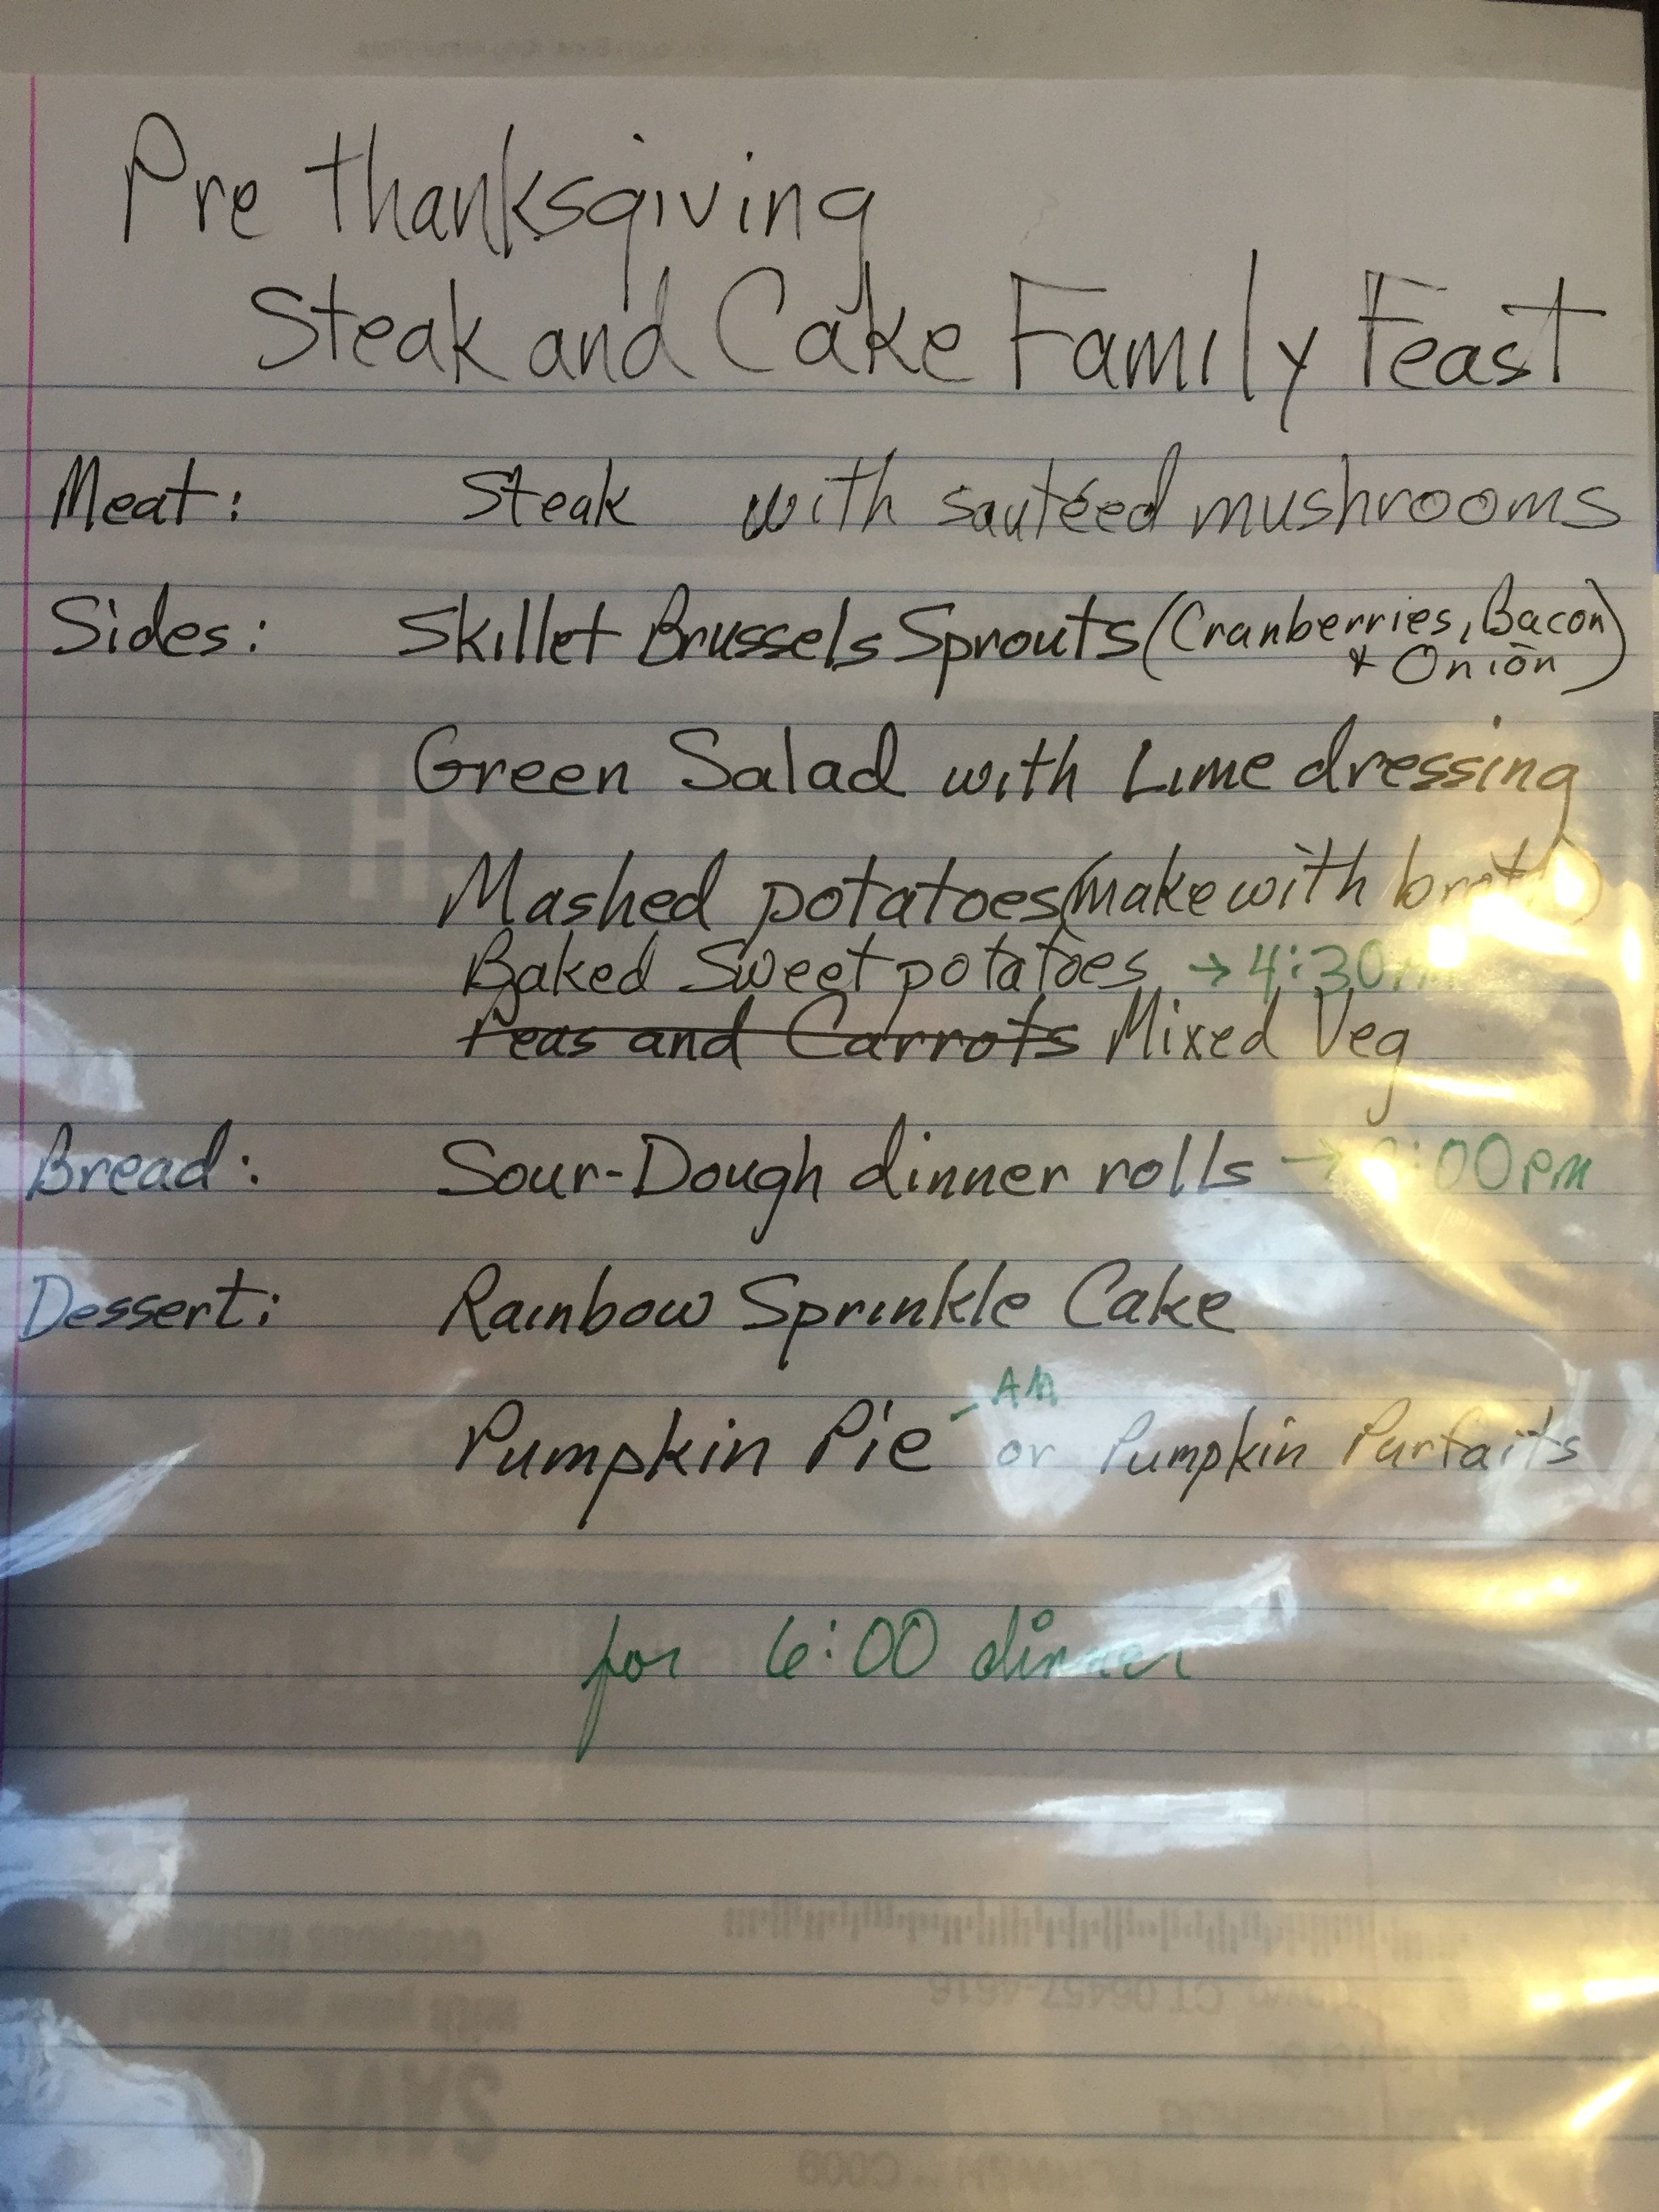 Pre thanksgiving
Steak and Cake Family Feast
Meat: Steak with sautéed mushrooms
Sides: Skillet Brussels Sprouts (Cranberries, Bacon
+ Onion)
Green Salad with Lime dressing
Mashed potatoes (make with broth)
Baked Sweet potatoes → 4:30
Peas and Carrots Mixed Veg
Bread: Sour-Dough dinner rolls → :00pm
Dessert: Rainbow Sprinkle Cake
- AM
Pumpkin Pie or Pumpkin Parfaits
for 6:00 dinner